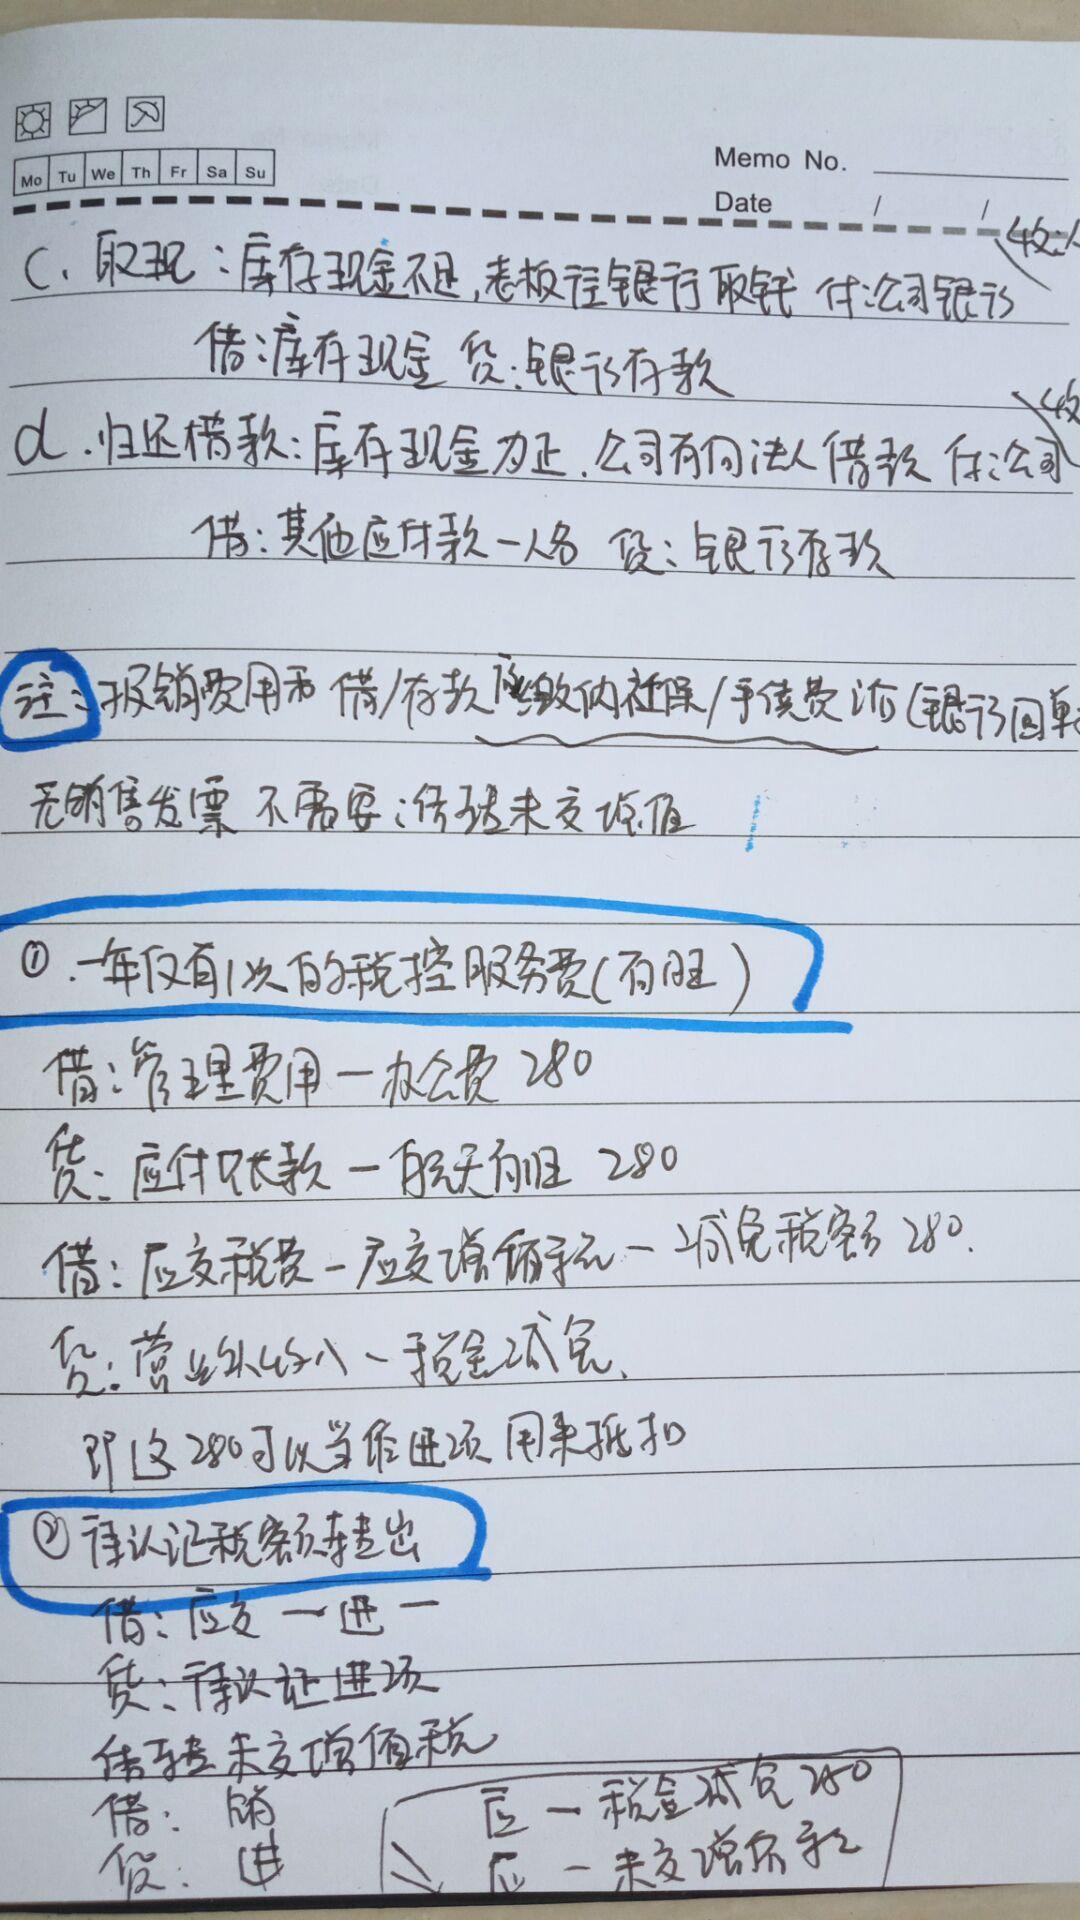 Mo Tu We Th Fr Sa Su
Memo No.
Date / /
收:
C. 取现:库存现金不足,老板往银行取钱 付:公司银行
借:库存现金 贷:银行存款
收
d.归还借款:库存现金为正.公司有向法人借款 付:公司
借:其他应付款一人名 贷:银行存款
注:报销费用和借/存款 缴纳社保/手续费 (银行回单
无销售发票 不需要:结转未交增值
① .一年仅有1次的税控服务费(百旺)
借:管理费用一办公费 280
贷:应付账款一航天百旺 280
借:应交税费一应交增值税一减免税额 280.
贷:营业外收入一税金减免.
即这280可以当作进项用来抵扣
② 待认证税额转出
借:应交 一进一
贷:待认证进项
结转未交增值税
借: 销
贷: 进
应 一 税金减免 280
应 一 未交增值税